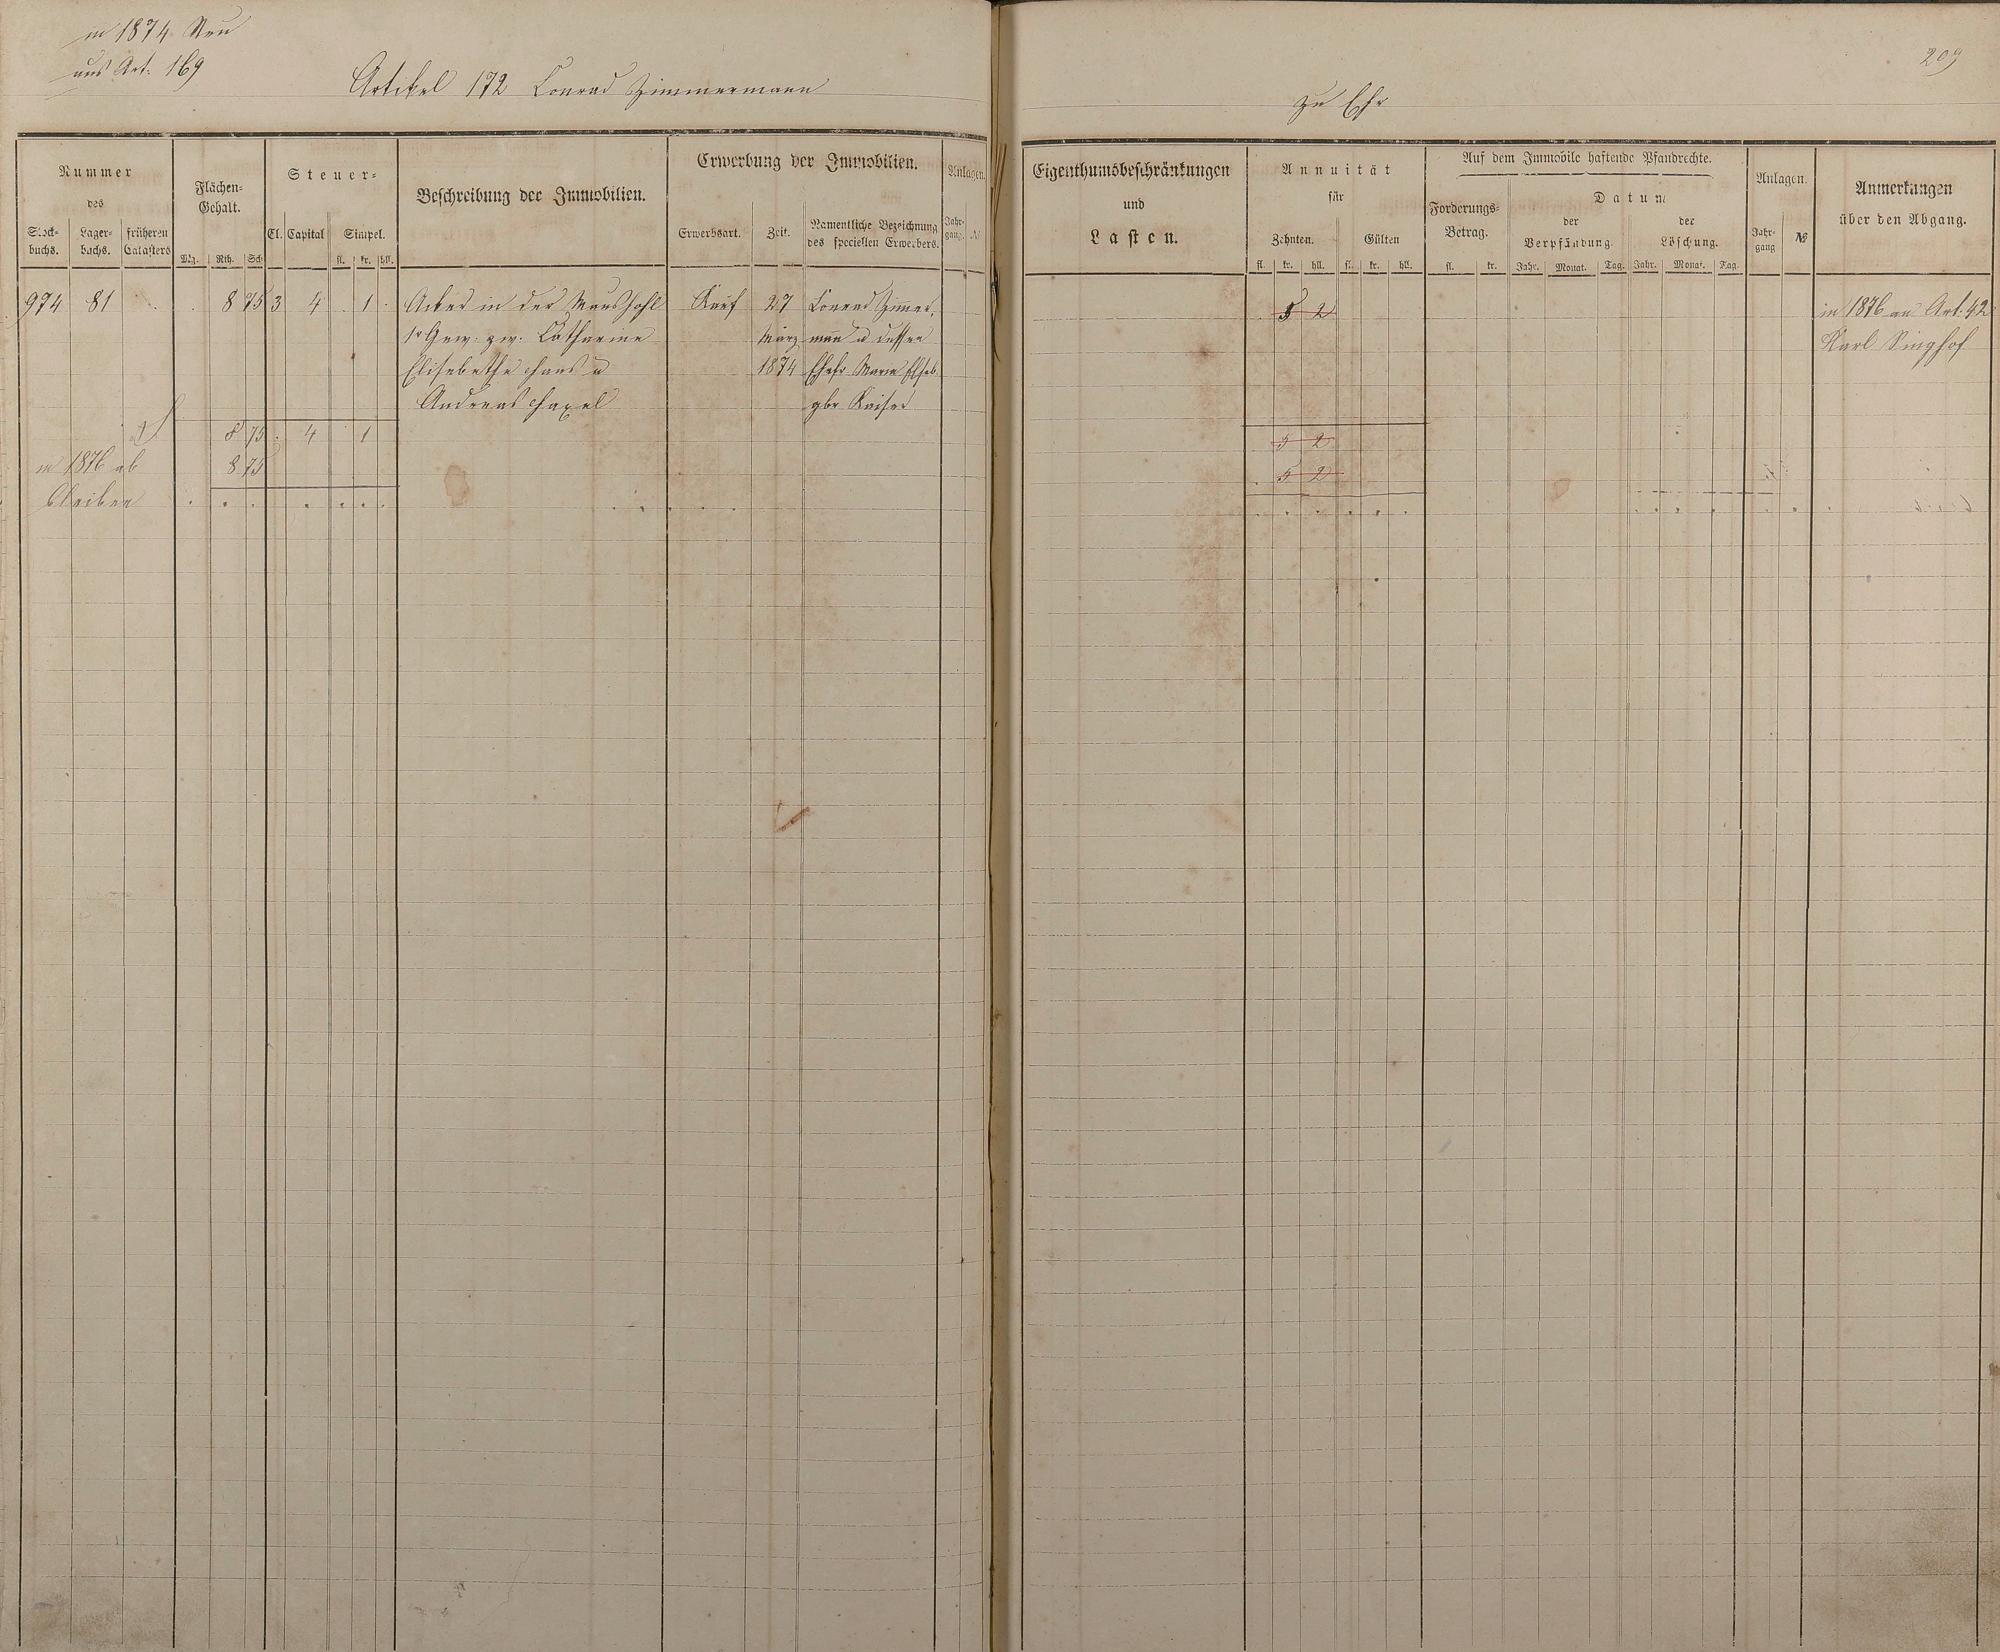 in 1874 Neu
aus Art. 169
Artikel 172 Conrad Zimmermann
zu Ehr
209
Nummer
des
Stock-
buchs.
Lager-
buchs.
früheren
Catasters
Flächen-
Gehalt.
Mg. Rth. Sch.
Steuer-
Cl. Capital Simpel.
fl. kr. hll.
Beschreibung der Immobilien.
Erwerbung der Immobilien.
Erwerbsart. Zeit. Namentliche Bezeichnung
des speciellen Erwerbers.
Anlagen.
Jahr-
gang. №
Eigenthumsbeschränkungen
und
Lasten.
Annuität
für
Zehnten. Gülten
fl. kr. hll. fl. kr. hll.
Auf dem Immobile haftende Pfandrechte.
Forderungs-
Betrag.
fl. kr.
Datum
der
Verpfändung.
der
Löschung.
Jahr. Monat. Tag. Jahr. Monat. Tag.
Anlagen.
Jahr-
gang №
Anmerkungen
über den Abgang.
974 81 8 75 3 4 1 Acker in der Maushohl Kauf 27 Conrad Zimmer- 5 2 in 1876 an Art. 42
1r Gew. zw. Catharine März mann u dessen Karl Singhof
Elisabethe Haus u 1874 Ehefr Maria Elisab.
Andreas Haxel gbr Kaiser
8 75 4 1 5 2
in 1876 ab 8 75 5 2
Bleiben